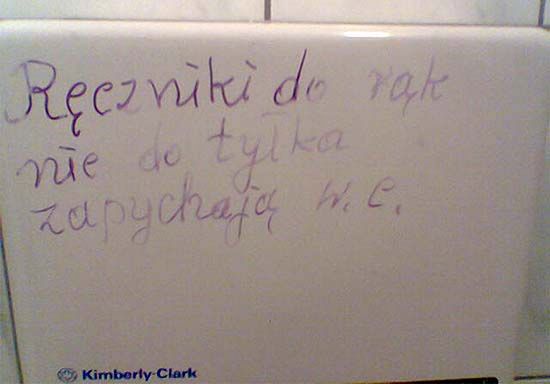 Ręczniki do rąk
nie do tyłka
zapychają w.c.
Kimberly-Clark